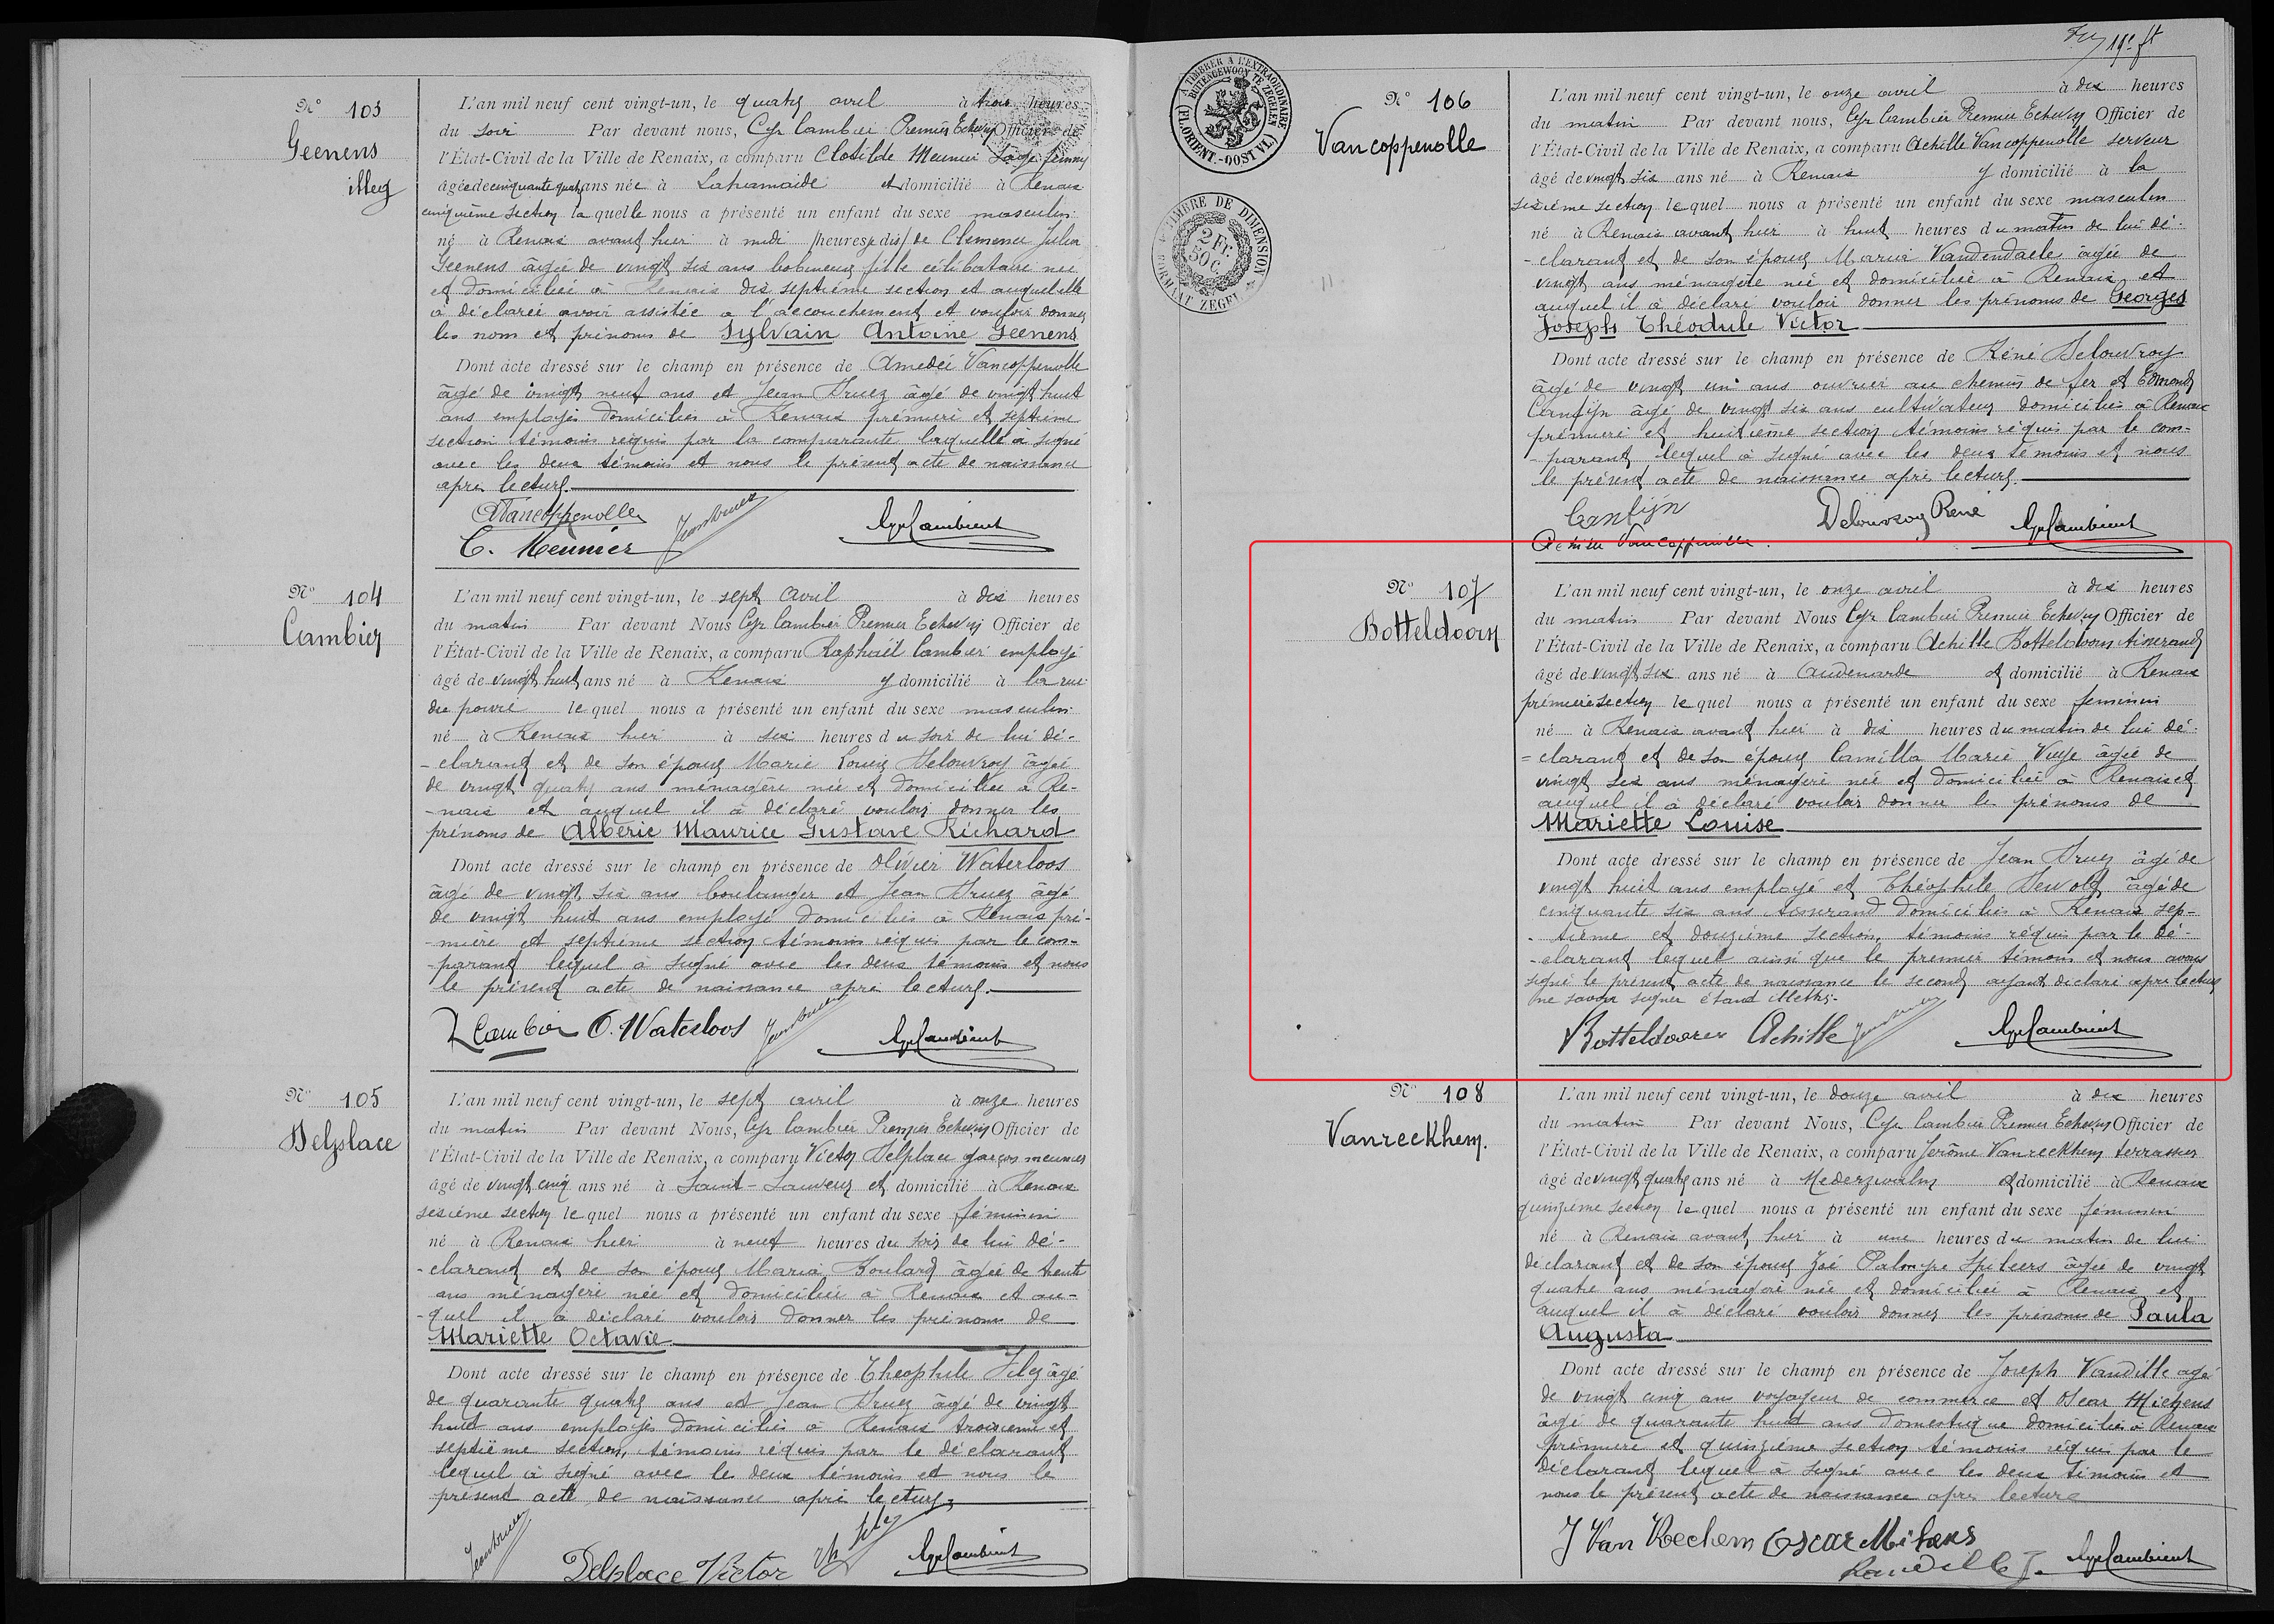 N° 103
Geenens
illeg
L'an mil neuf cent vingt-un, le quatre avril à trois heures
du soir Par devant nous, Cyr Cambier Premier Echevin Officier de
l'État-Civil de la Ville de Renaix, a comparu Clotilde Meunier sage femme
âgée de cinquante quatre ans née à Lahamaide et domicilié à Renaix
cinquième section laquelle nous a présenté un enfant du sexe masculin
né à Renaix avant hier à midi /heures dix/ de Clemence Julia
Geenens âgée de vingt six ans bobineuse fille célibataire née
et domiciliée à Renaix dix septième section et auquel elle
a déclarée avoir assistée a l'accouchement et vouloir donner
les nom et prénoms de Sylvain Antoine Geenens
Dont acte dressé sur le champ en présence de Amedée Vancoppenolle
âgé de vingt neuf ans et Jean Druez âgé de vingt huit
ans employés domiciliés à Renaix première et septième
section témoins réquis par la comparante laquelle a signé
avec les deux témoins et nous le présent acte de naissance
apres lecture.
AVancoppenolle
C. Meunier
JeanDruez
CyrCambier
N° 104
Cambier
L'an mil neuf cent vingt-un, le sept avril à dix heures
du matin Par devant Nous Cyr Cambier Premier Echevin Officier de
l'État-Civil de la Ville de Renaix, a comparu Raphaël Cambier employé
âgé de vingt huit ans né à Renaix y domicilié à la rue
du poivre lequel nous a présenté un enfant du sexe masculin
né à Renaix hier à six heures du soir de lui dé-
-clarant et de son épouse Marie Louise Delouvroy âgée
de vingt quatre ans ménagère née et domiciliée à Re-
-naix et auquel il à déclaré vouloir donner les
prénoms de Albéric Maurice Gustave Richard
Dont acte dressé sur le champ en présence de Olivier Waterloos
âgé de vingt six ans boulanger et Jean Druez âgé
de vingt huit ans employé domiciliés à Renaix pré-
-mière et septième section témoins réquis par le com-
-parant lequel à signé avec les deux témoins et nous
le présent acte de naissance après lecture.
R Cambier O. Waterloos JeanDruez CyrCambier
N° 105
Delplace
L'an mil neuf cent vingt-un, le sept avril à onze heures
du matin Par devant Nous, Cyr Cambier Premier Echevin Officier de
l'État-Civil de la Ville de Renaix, a comparu Victor Delplace garçon meunier
âgé de vingt cinq ans né à Saint-Sauveur et domicilié à Renaix
seizième section lequel nous a présenté un enfant du sexe féminin
né à Renaix hier à neuf heures du soir de lui dé-
-clarant et de son épouse Maria Boulard âgée de trente
ans ménagère née et domiciliée à Renaix et au-
-quel il a déclaré vouloir donner les prénoms de
Mariette Octavie
Dont acte dressé sur le champ en présence de Théophile
de quarante quatre ans et Jean Druez âgé de vingt
huit ans employés domiciliés à Renaix troisième et
septième section, témoins réquis par le déclarant
lequel à signé avec le deux témoins et nous le
présent acte de naissance après lecture
JeanDruez Delplace Victor CyrCambier
A TIMBRER A L'EXTRAORDINAIRE
BUITENGEWOON TE ZEGELEN
(FL. ORIENT.-OOST VL.)
TIMBRE DE DIMENSION
2 Fr.
50 C.
FORMAAT ZEGEL
N° 106
Vancoppenolle
L'an mil neuf cent vingt-un, le onze avril à dix heures
du matin Par devant nous, Cyr Cambier Premier Echevin Officier de
l'État-Civil de la Ville de Renaix, a comparu Achille Vancoppenolle serveur
âgé de vingt six ans né à Renaix y domicilié à la
sixième section lequel nous a présenté un enfant du sexe masculin
né à Renaix avant hier à huit heures du matin de lui dé-
-clarant et de son épouse Maria Vandendaele âgée de
vingt ans ménagère née et domiciliée à Renaix et
auquel il à déclaré vouloir donner les prénoms de Georges
Joseph Théodule Victor
Dont acte dressé sur le champ en présence de Réné Delouvroy
âgé de vingt un ans ouvrier au chemin de fer et Edmond
Cantijn âgé de vingt six ans cultivateur domiciliés à Renaix
première et huitième section témoins réquis par le com-
-parant lequel à signé avec les deux témoins et nous
le présent acte de naissance après lecture.
Cantijn Delouvroy René CyrCambier
Achille Vancoppenolle.
N° 107
Botteldoorn
L'an mil neuf cent vingt-un, le onze avril à dix heures
du matin Par devant Nous Cyr Cambier Premier Echevin Officier de
l'État-Civil de la Ville de Renaix, a comparu Achille Botteldoorn tisserand
âgé de vingt six ans né à Audenarde et domicilié à Renaix
première section lequel nous a présenté un enfant du sexe feminin
né à Renaix avant hier à dix heures du matin de lui dé-
=clarant et de son épouse Camilla Marie Vuye âgée de
vingt six ans ménagère née et domiciliée à Renaix et
auquel il à déclaré vouloir donner les prénoms de
Mariette Louise
Dont acte dressé sur le champ en présence de Jean Druez âgé de
vingt huit ans employé et Théophile Dewolf âgé de
cinquante six ans tisserand domiciliés à Renaix sep-
-tième et douzième section, témoins réquis par le dé-
-clarant lequel ainsi que le premier témoin et nous avons
signé le présent acte de naissance le second ayant déclaré après lecture
ne savoir signer étant illettré.
Botteldooren Achille JeanDruez CyrCambier
N° 108
Vanreckhem.
L'an mil neuf cent vingt-un, le douze avril à dix heures
du matin Par devant Nous, Cyr Cambier Premier Echevin Officier de
l'État-Civil de la Ville de Renaix, a comparu Jerôme Vanreckhem terrassier
âgé de vingt quatre ans né à Nederzwalm et domicilié à Renaix
quinzième section lequel nous a présenté un enfant du sexe féminin
né à Renais avant hier à une heures du matin de lui
déclarant et de son épouse Zoé Palmyre Spileers âgée de vingt
quatre ans ménagère née et domiciliée à Renaix et
auquel il à déclaré vouloir donner les prénoms de Paula
Augusta
Dont acte dressé sur le champ en présence de Joseph Vandille agé
de vingt cinq ans voyageur de commerce et Oscar Michens
âgé de quarante huit ans domestique domiciliés à Renaix
première et quinzième section témoins réquis par le
déclarant lequel à signé avec les deux témoins et
nous le présent acte de naissance après lecture
J Van Reechem Oscar Mihens
Vandille J. CyrCambier